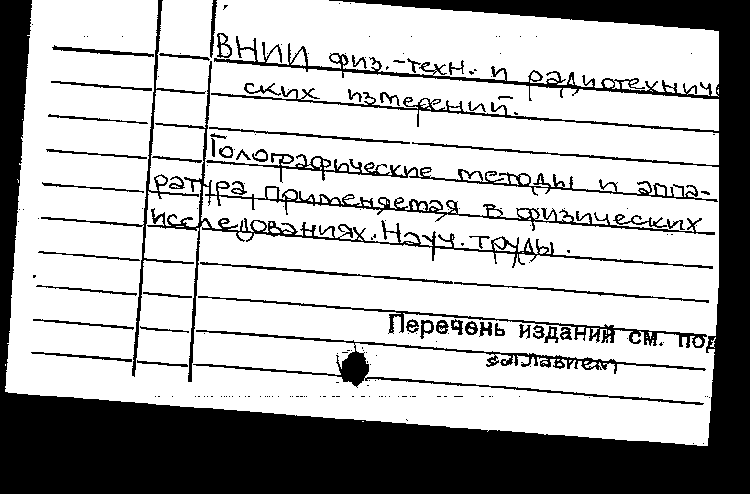 ВНИИ физ.-техн. и радиотехниче
ских измерений.
Голографические методы и аппа-
ратура, применяемая в физических
исследованиях. Науч. труды.
Перечень изданий см. под
заглавием